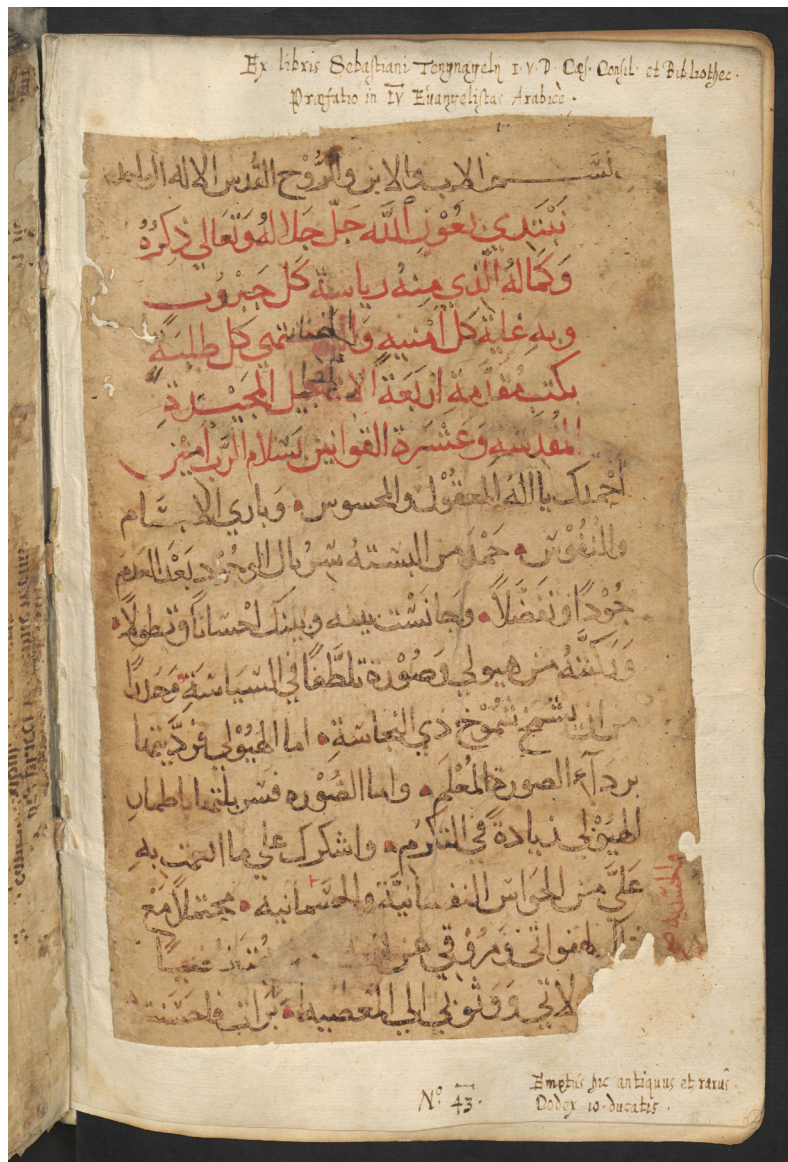 Ex libris Sebastiani Tengnagelij I·V·D· Cæs· Consil· et Bibliothec·
Præfatio in IV Euangelistas Arabicè ·
بسم الاب والابن والروح القدس الاله الواحد
نَبْتَدي بعَوْنِ اللَّه جَلّ جلالهُ وَتَعَالي ذِكرُهُ
وَكمَالهُ الّذي مِنهُ رياسة كل جَبرُوت
وبهِ غاية كل أمْنيهِ كل طلبَة
بكتب مُقدّمة اربَعَة الاناجيل المجيدة
المقدسهِ وَعَشرة القوانين بسَلام الرَّب امين
أحْمدك يا اله المعقُوْل والمحسوس • وَباري الاجسام
والنُفُوْس • حَمْدَ من البستهُ سرْبال الوجُود بَعْد العَدَم
جُوْدًا وتَفَضّلاً • وَجَانسْت بينه وبينك احْسَاناً وتطولاً •
وَركّبتهُ من هيولي وَصُوْرة تلَطّفًا في السيَاسَةِ •
من ان يشمخ شُمُوْخ ذي النجاسَةِ • اما الهيُوْلي فردَّيتها
بردَآء الصورة المُعْلَم • واما الصُوْره فسربلتها باطمار
الهيُوْلي زيادةً في التكرُم • واشكرك علي ما انعمت بهِ
عَليَّ من الحَواس النفسانيَّة والجسْمانيه •
والحسّيه صح
لهفواتي وَمرُوْقي عن
لاتي وَوثُوْبي الي المعْصيه •
Nº 43·
Emptus hic antiquus et rarus
Codex 10·ducatis·